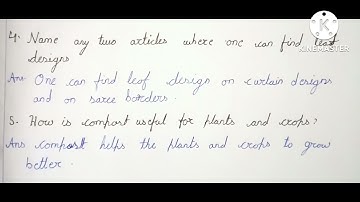 4. Name any two articles where one can find leaf
designs
Ans One can find leaf design on curtain designs
and on saree borders.
5. How is compost useful for plants and crops?
Ans compost helps the plants and crops to grow
better.
KINEMASTER